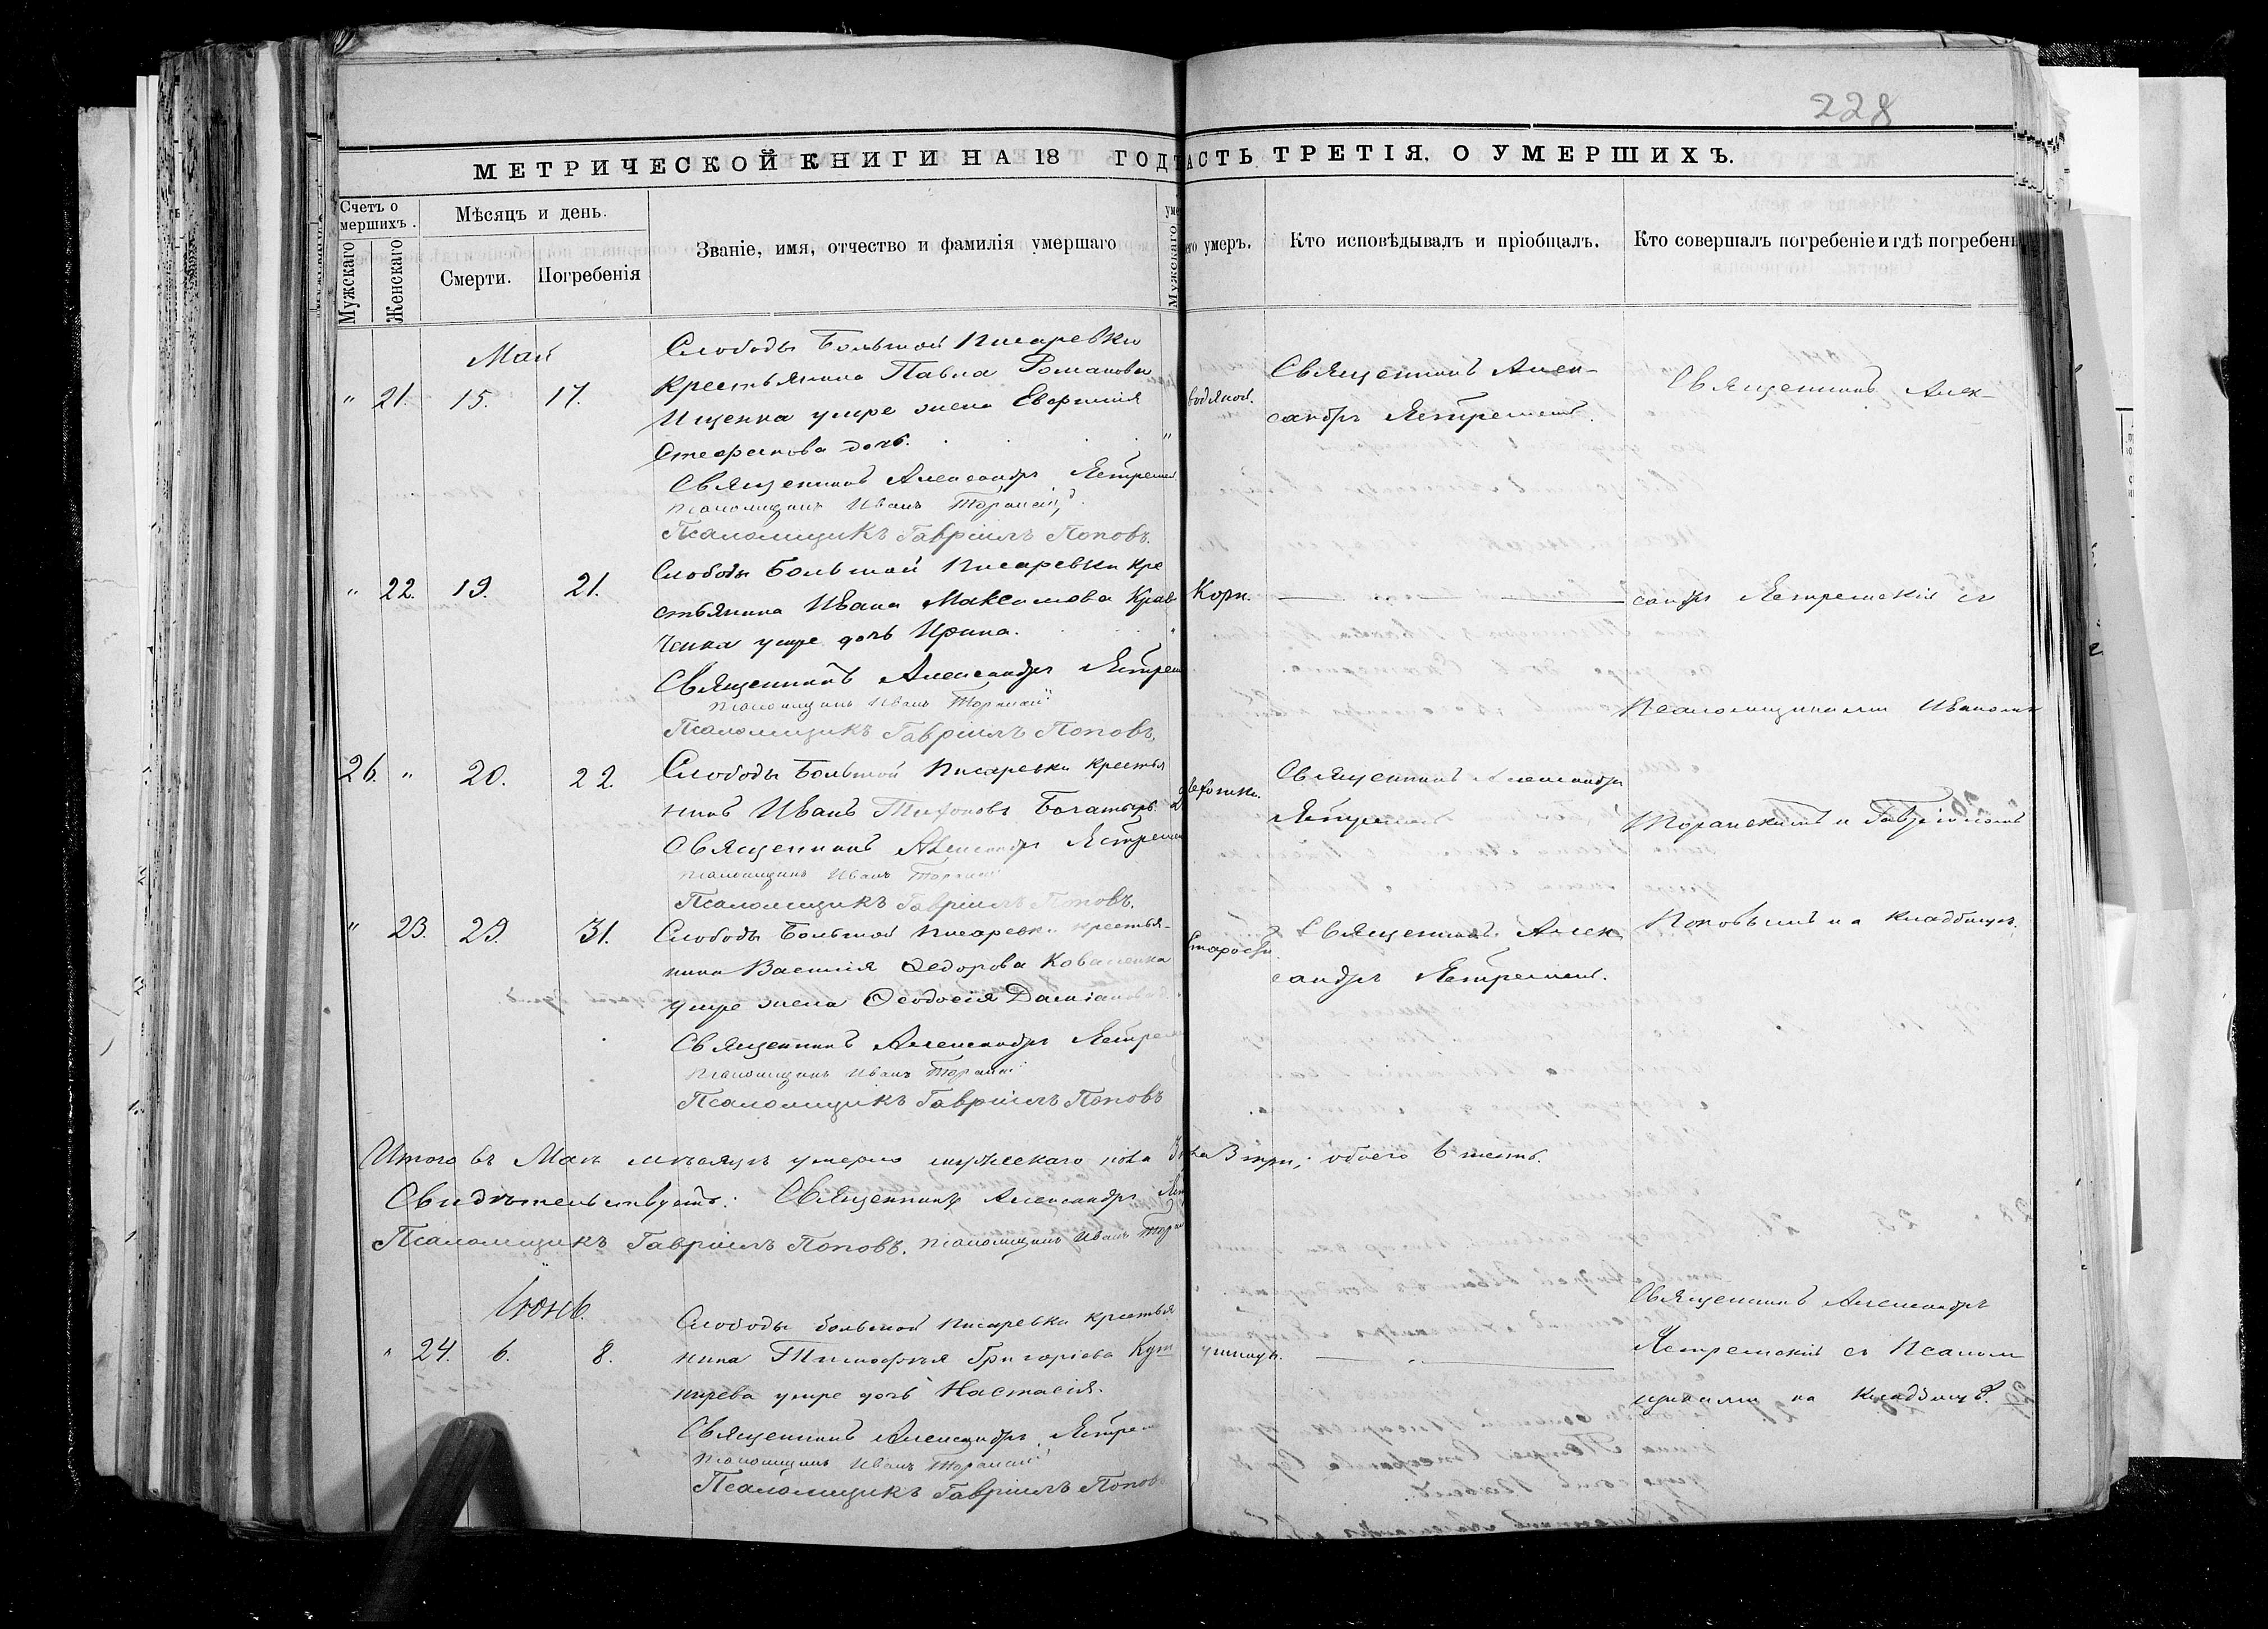 228
МЕТРИЧЕСКОЙ КНИГИ НА 18 ГОДЪ
АСТЬ ТРЕТІЯ, О УМЕРШИХЪ.
Счетъ о
мершихъ.
Мужскаго
Женскаго
Мѣсяцъ и день.
Смерти.
Погребенія
Званіе, имя, отчество и фамилія умершаго
Мужскаго
его умеръ.
Кто исповѣдывалъ и пріобщалъ.
Кто совершалъ погребеніе и гдѣ погребены
Май
Слободы Большой Писаревки
" 21. 15. 17. крестьянина Павла Романова
Ищенка умре жена Евфимія
Стефанова дочь.
Священникъ Александръ
Псаломщикъ Иванъ Торанскій
Псаломщикъ Гавріилъ Поповъ.
водяной.
Священникъ Алек-
сандръ Ястремскій.
Священникъ Алек-
" 22. 19. 21. Слободы Большой Писаревки кре
стьянина Ивана Максимова Крав
ченка умре дочь Ирина.
Священникъ Александръ
Псаломщикъ Иванъ Торанскій
Псаломщикъ Гавріилъ Поповъ.
Кори.
сандръ Ястремскій съ
Псаломщиками Иваномъ
26. " 20. 22. Слободы Большой Писаревки крестья
нинъ Иванъ Тихоновъ Богатырь.
Священникъ Александръ
Псаломщикъ Иванъ Торанскій
Псаломщикъ Гавріилъ Поповъ.
Священникъ Александръ
Ястремскій
Торанскимъ и Гавріиломъ
" 23. 29. 31. Слободы Большой Писаревки крестья-
нина Василія Ѳедорова Коваленка
умре жена Ѳеодосія Даміанова
Священникъ Александръ
Псаломщикъ Иванъ Торанскій
Псаломщикъ Гавріилъ Поповъ
Старости
Священникъ Алек
сандръ Ястремскій.
Поповымъ на кладбищѣ.
Итого въ Маѣ мѣсяцѣ умерло мужескаго пола 3 три; обоего 6 шесть.
Свидѣтельствуетъ: Священникъ Александръ
Псаломщикъ Гавріилъ Поповъ. Псаломщикъ Иванъ
Іюнь.
Слободы Большой Писаревки крестья
" 24. 6. 8. нина Тимофея Григоріева
умре дочь Настасія.
Священникъ Александръ
Псаломщикъ Иванъ Торанскій
Псаломщикъ Гавріилъ Поповъ
Священникъ Александръ
Ястремскій съ Псалом
щиками на кладбищѣ.